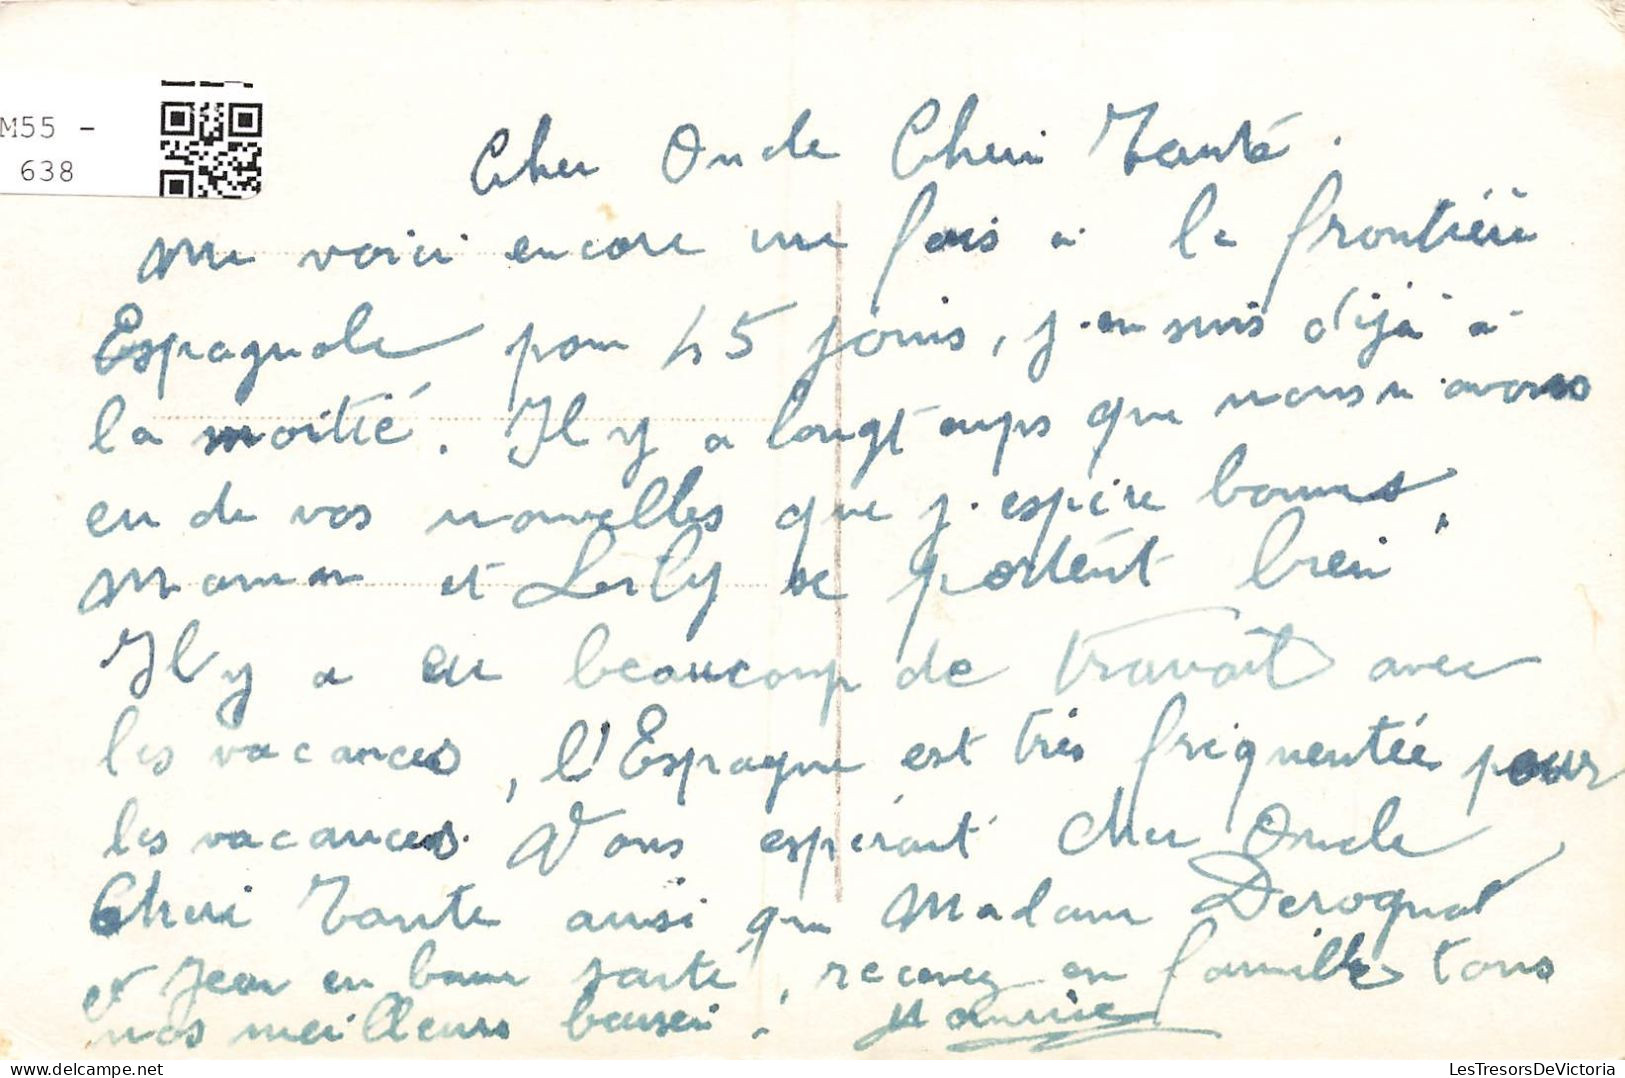 M55 -
638
Cher Oncle Cheri Tante.
me voici encore une fois a la frontière
Espagnole pour 45 jours, j.en suis déjà a
la moitié. Il y a longtemps que nous n avons
eu de vos nouvelles que j.espère bonnes,
maman et se portent bien
Il y a eu beaucoup de travail avec
les vacances, l'Espagne est très friquentée pour
les vacances. Vous espérant cher Oncle
Cheri Tante ainsi que Madame
et Jean en bonne santé, recevez en famille tous
nos meilleurs baiser.
LesTresorsDeVictoria